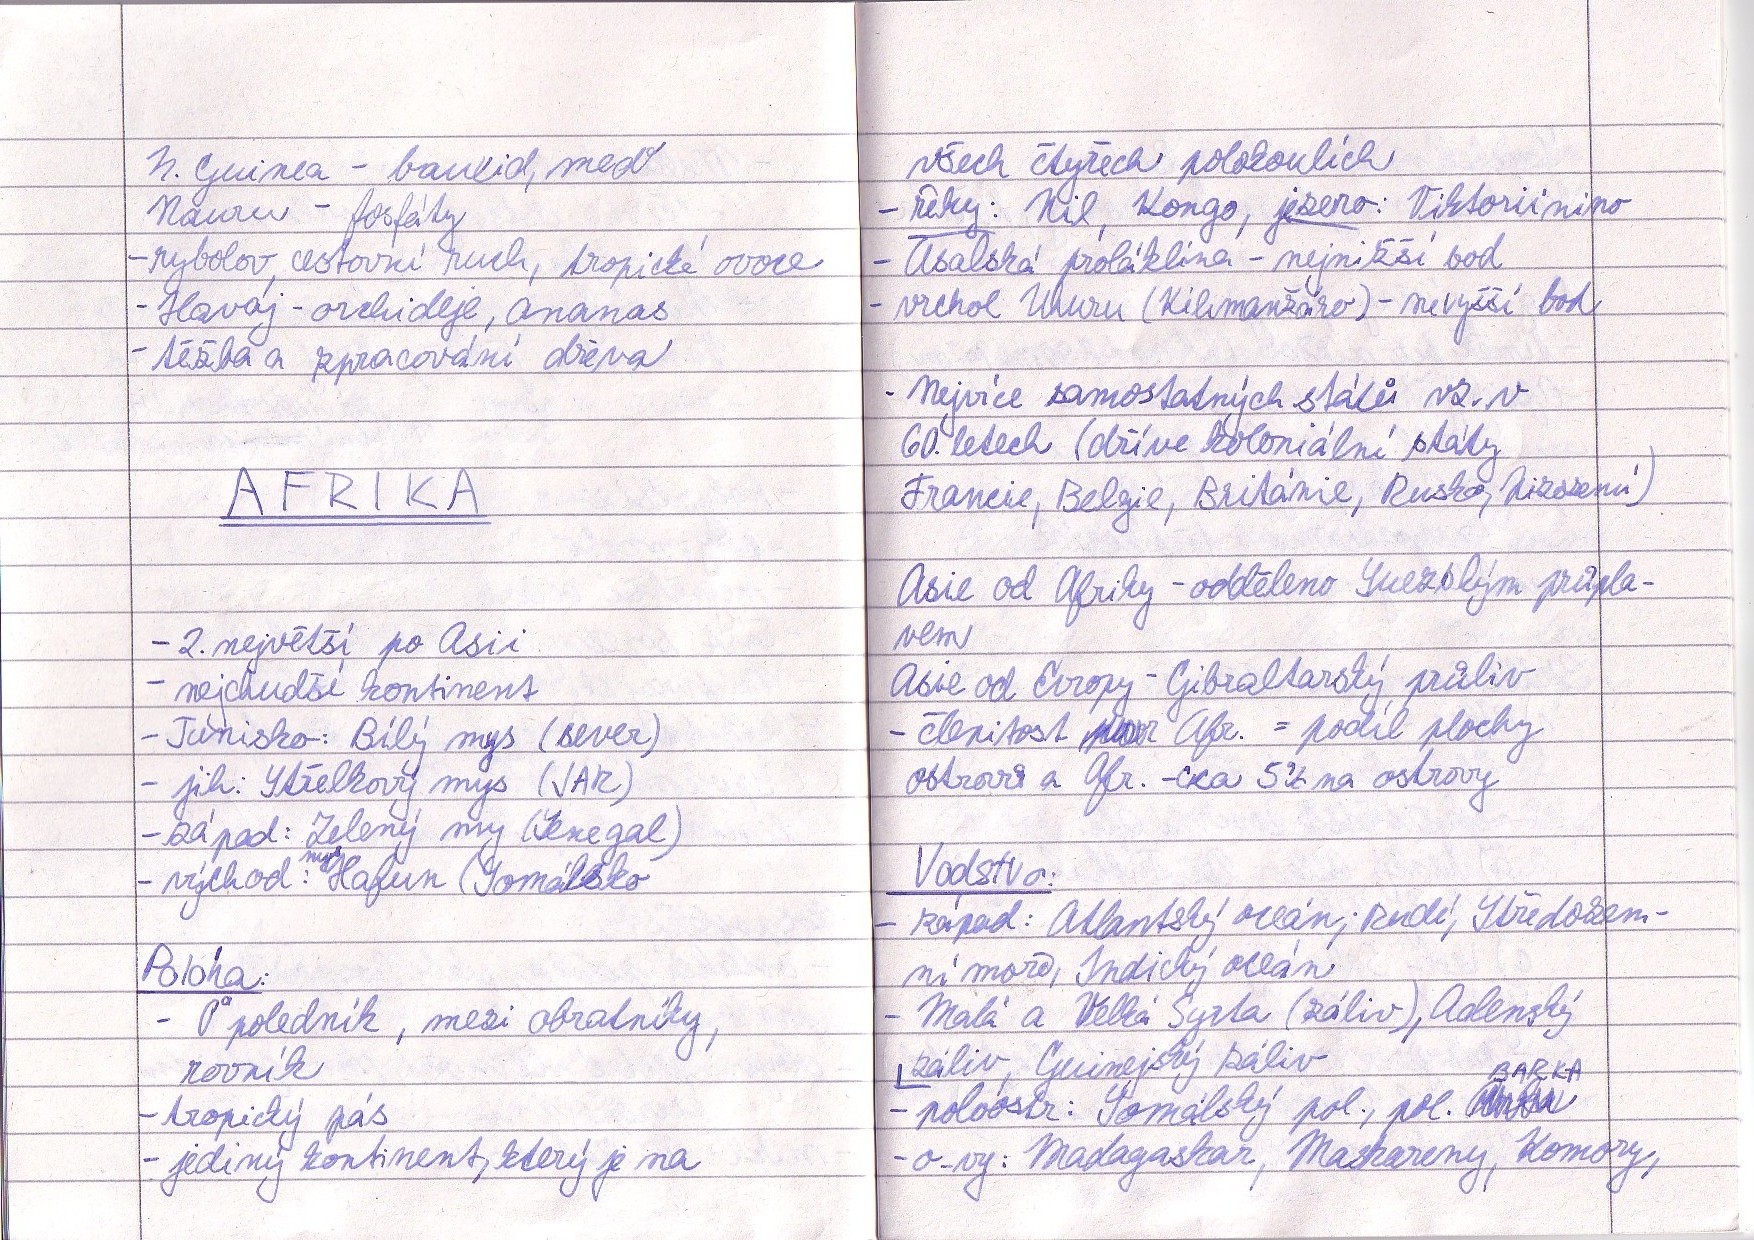 N. Guinea - bauxid, med
Nauru - fosfáty
- rybolov, cestovní ruch, tropické ovoce
- Havaj - orchideje, ananas
- těžba a zpracování dřeva
AFRIKA
- 2. největší po Asii
- nejchudší kontinent
- Tunisko: Bílý mys (sever)
- jih: Střelkový mys (JAR)
- západ: Zelený my (Senegal)
- východ: mys Hafun (Somálsko
Poloha:
- 0° poledník, mezi obratníky,
rovník
- tropický pás
- jediný kontinent, který je na
všech čtyřech polokoulích
- řeky: Nil, Kongo, jezero: Viktoriinino
- Asalská proláklina - nejnižší bod
- vrchol Uhuru (Kilimanžáro) - nevyšší bod
- Nejvíce samostatných států vz. v
60. letech (dříve koloniální státy
Francie, Belgie, Británie, Rusko, Nizozemí)
Asie od Afriky - odděleno Suezským průpla-
vem
Asie od Evropy - Gibraltarský průliv
- členitost Afr. = podíl plochy
ostrovů a Afr. - cca 5% na ostrovy
Vodstvo:
- západ: Atlantský oceán; Rudé, Středozem-
ní moře, Indický oceán
- Malá a Velká Syrta (záliv), Adenský
záliv, Guinejský záliv
- poloostr: Somálský pol., pol. BARKA
- o-vy: Madagaskar, Maskareny, Komory,